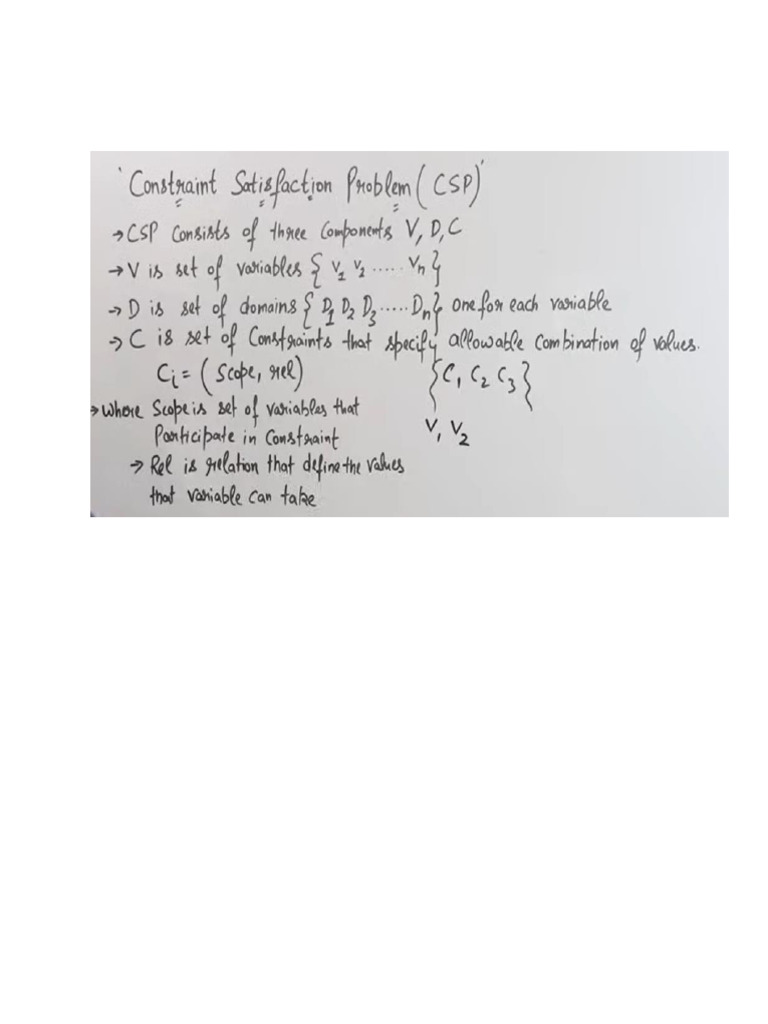 'Constraint Satisfaction Problem (CSP)'
→ CSP Consists of three Components V, D, C
→ V is set of variables { V1 V2 ..... Vn }
→ D is set of domains { D1 D2 D3 ..... Dn } one for each variable
→ C is set of Constraints that specify allowable Combination of values.
Ci = (Scope, rel)
{ C1 C2 C3 }
→ Where Scope is set of variables that
Participate in Constraint
V1 V2
→ Rel is relation that define the values
that variable can take